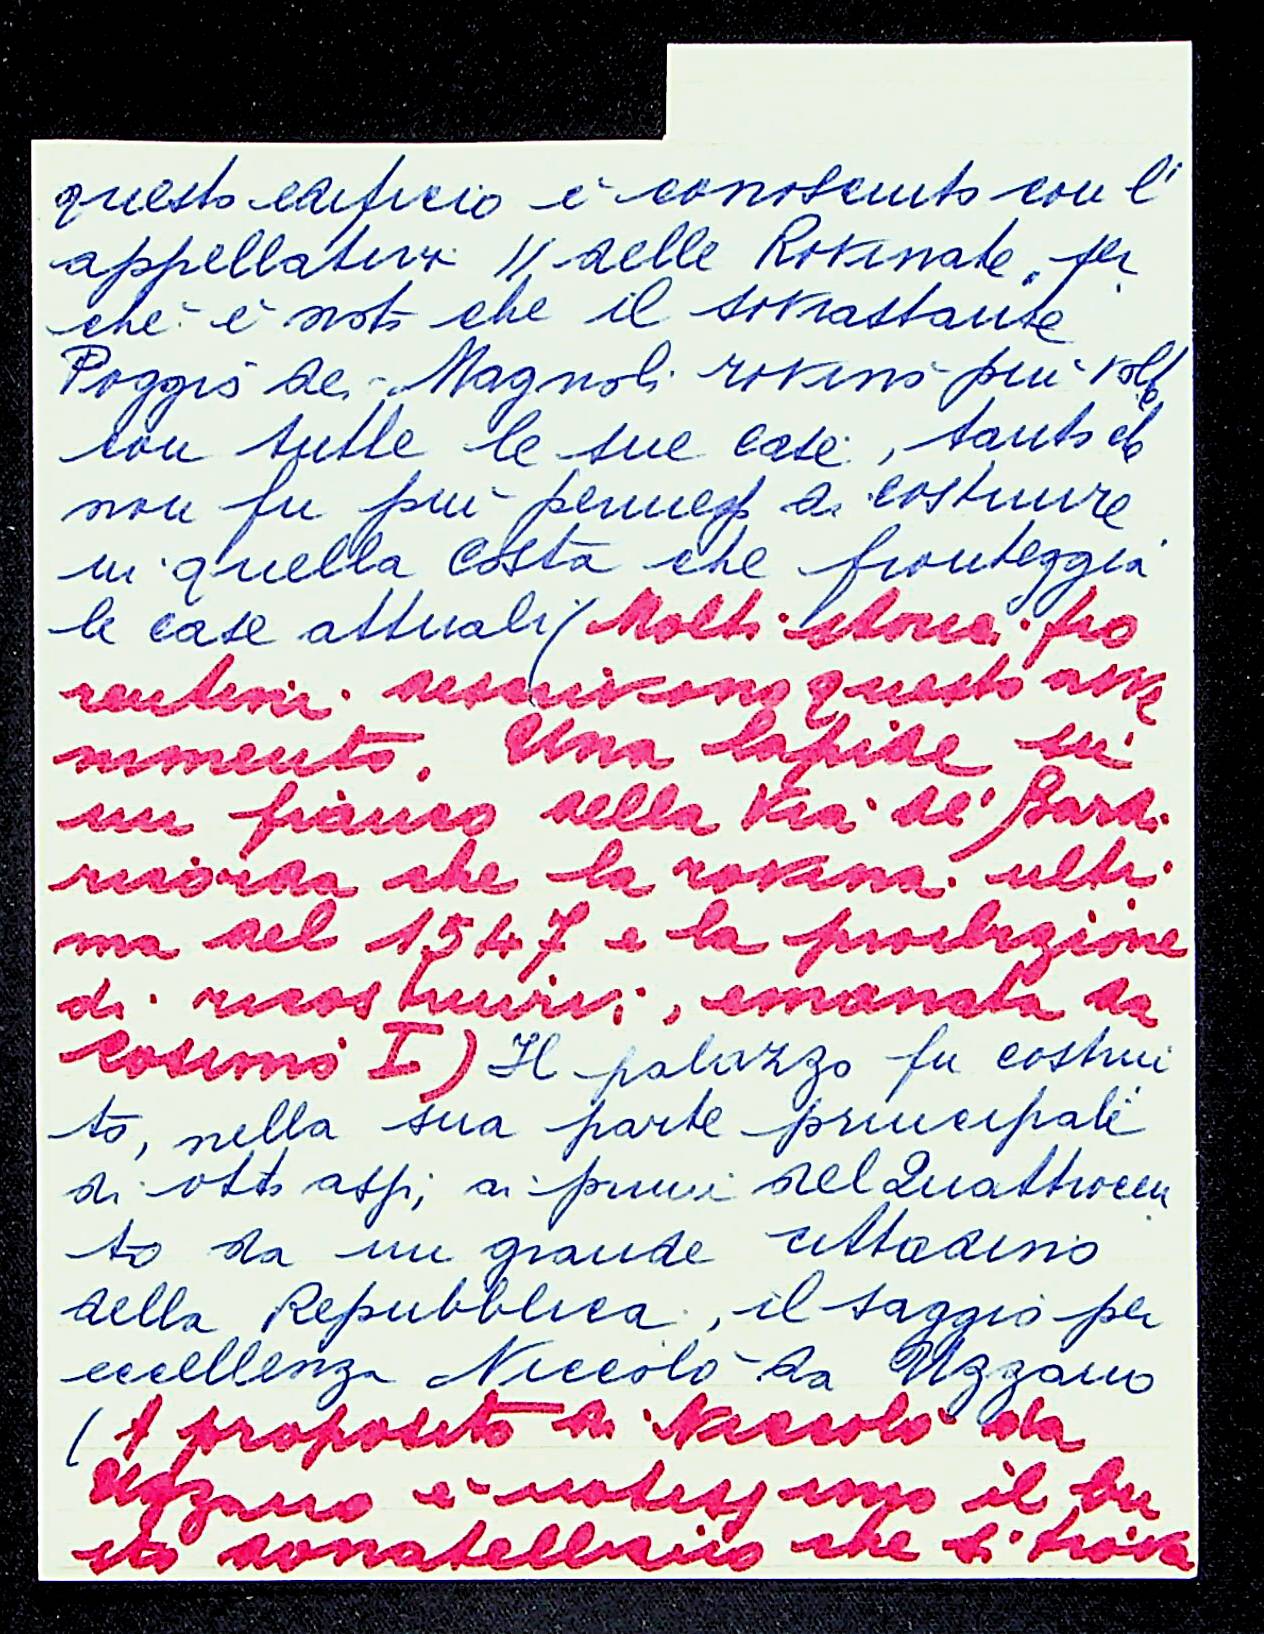 questo edificio è conosciuto con l'
appellativo " delle Rovinate " per
chè è noto che il sovrastante
Poggio de' Magnoli rovinò più volte
con tutte le sue case, tanto che
non fu più permesso di costruire
in quella costa che fronteggia
le case attuali (Molti storici fio
rentini descrivono questo avve
nimento. Una lapide su
un fianco della Via de' Bardi
ricorda che la rovina ulti
ma del 1547 e la proibizione
di ricostruirvi, emanata da
Cosimo I) Il palazzo fu costrui
to, nella sua parte principale
di otto assi, ai primi del Quattrocen
to da un grande cittadino
della Repubblica, il saggio per
eccellenza Niccolò da Uzzano
(A proposito di Niccolò da
Uzzano è notissimo il bu
sto donatelliano che si trova